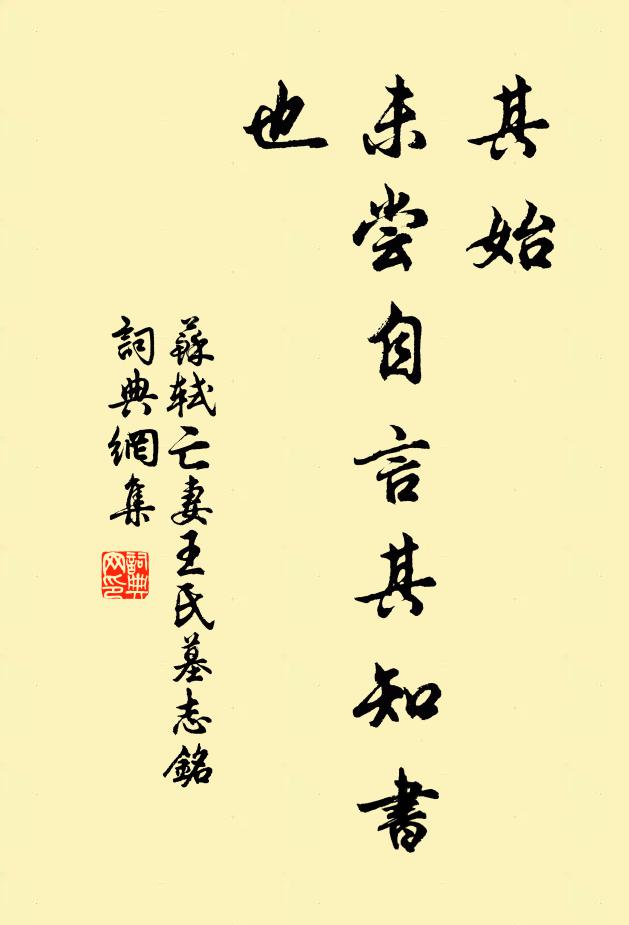 其始
未尝自言其知書
也
蘇軾亡妻王氏墓志銘
詞典網集
詞典网印